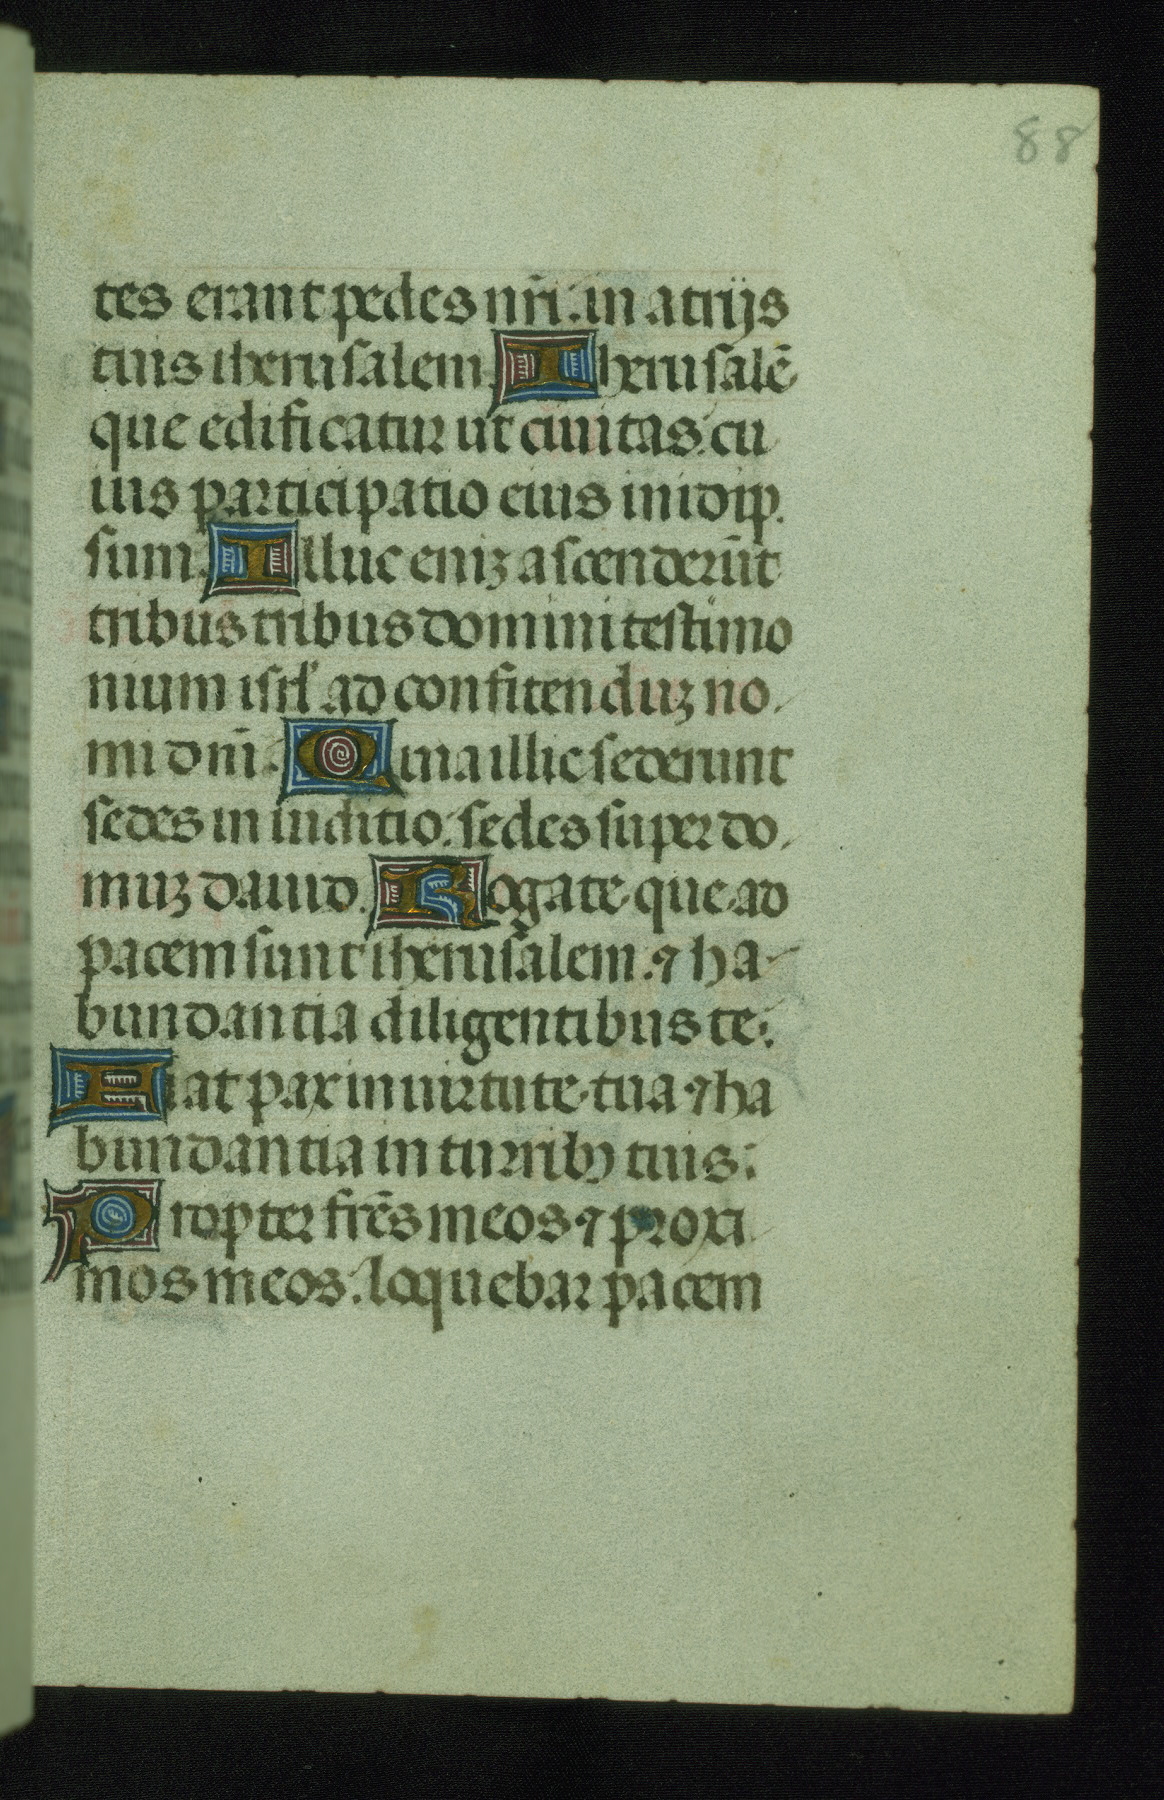 88
tes erant pedes nr̄i : in atrijs
tuis iherusalem. Iherusalē
que edificatur ut ciuitas. cu
ius participatio eius in idip.
sum. Illuc eniȝ ascenderūt
tribus tribus domini testimo
nium isrl' ad confitenduȝ no.
mi dn̄i. Quia illic sederunt
sedes in iuditio : sedes super do.
muȝ dauid. Rogate que ad
pacem sunt iherusalem. ⁊ ha-
bundantia diligentibus te :
Fiat pax in uirtute tua ⁊ ha
bundantia in turribꝫ tuis :
Propter fr̄es meos ⁊ proxi
mos meos : loquebar pacem